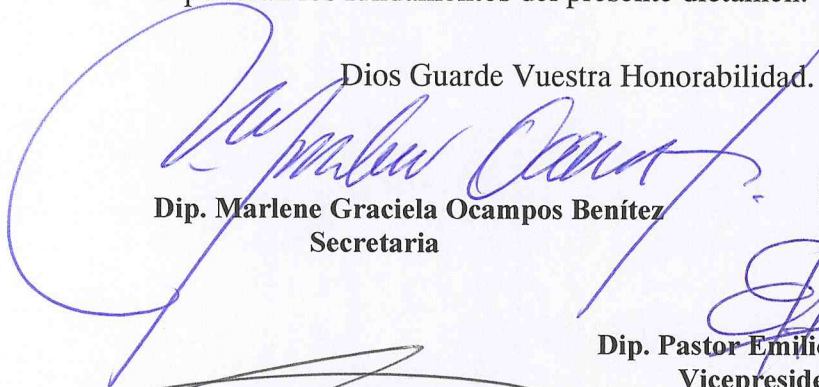 fundamentos del presente dictamen.
Dios Guarde Vuestra Honorabilidad.
Dip. Marlene Graciela Ocampos Benítez
Secretaria
Dip. Pastor Emilio
Vicepreside